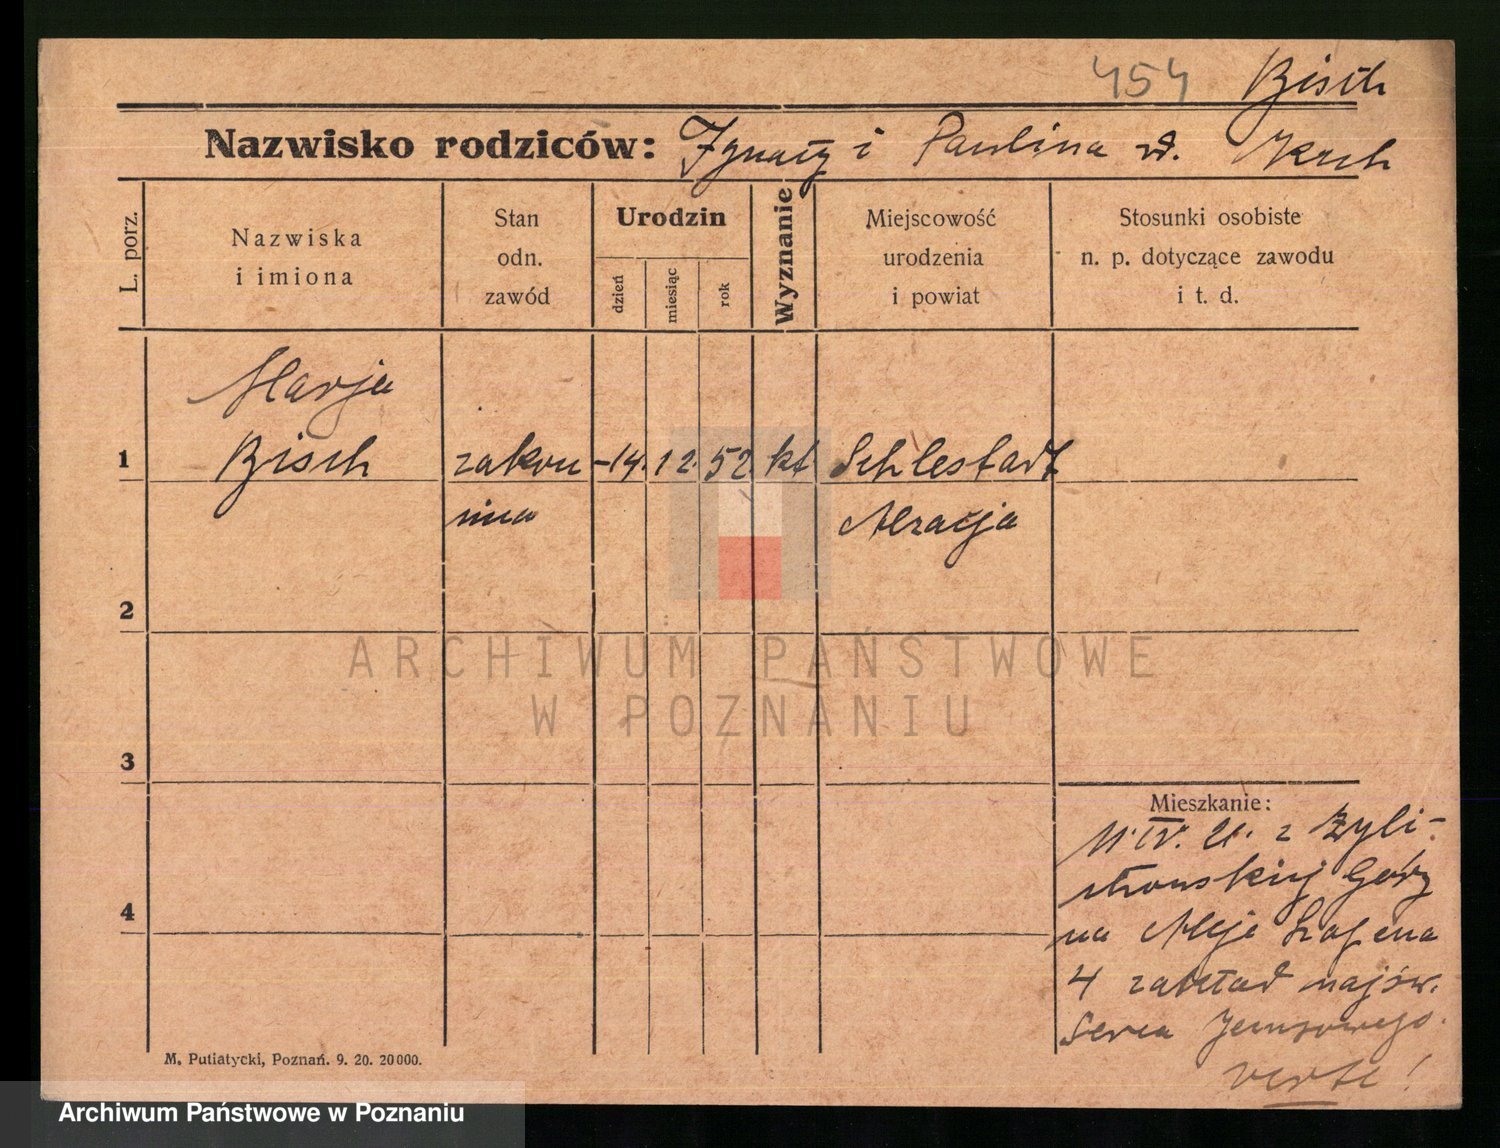 454 Bisch
Nazwisko rodziców: Ignacy i Paulina
L. porz.
Nazwiska
i imiona
Stan
odn.
zawód
Urodzin
dzień
miesiąc
rok
Wyznanie
Miejscowość
urodzenia
i powiat
Stosunki osobiste
n. p. dotyczące zawodu
i t. d.
Marja
1 Bisch zakon- 14. 12. 52 kt Schlestadt
nica Alzacja
2
3
4
Mieszkanie:
11. IV. 21. z Żyli-
Góry
na Aleje Szopena
4 zakład najśw.
Serca Jezusowego.
verte!
M. Putiatycki, Poznań. 9. 20. 20000.
ARCHIWUM PAŃSTWOWE
W POZNANIU
Archiwum Państwowe w Poznaniu